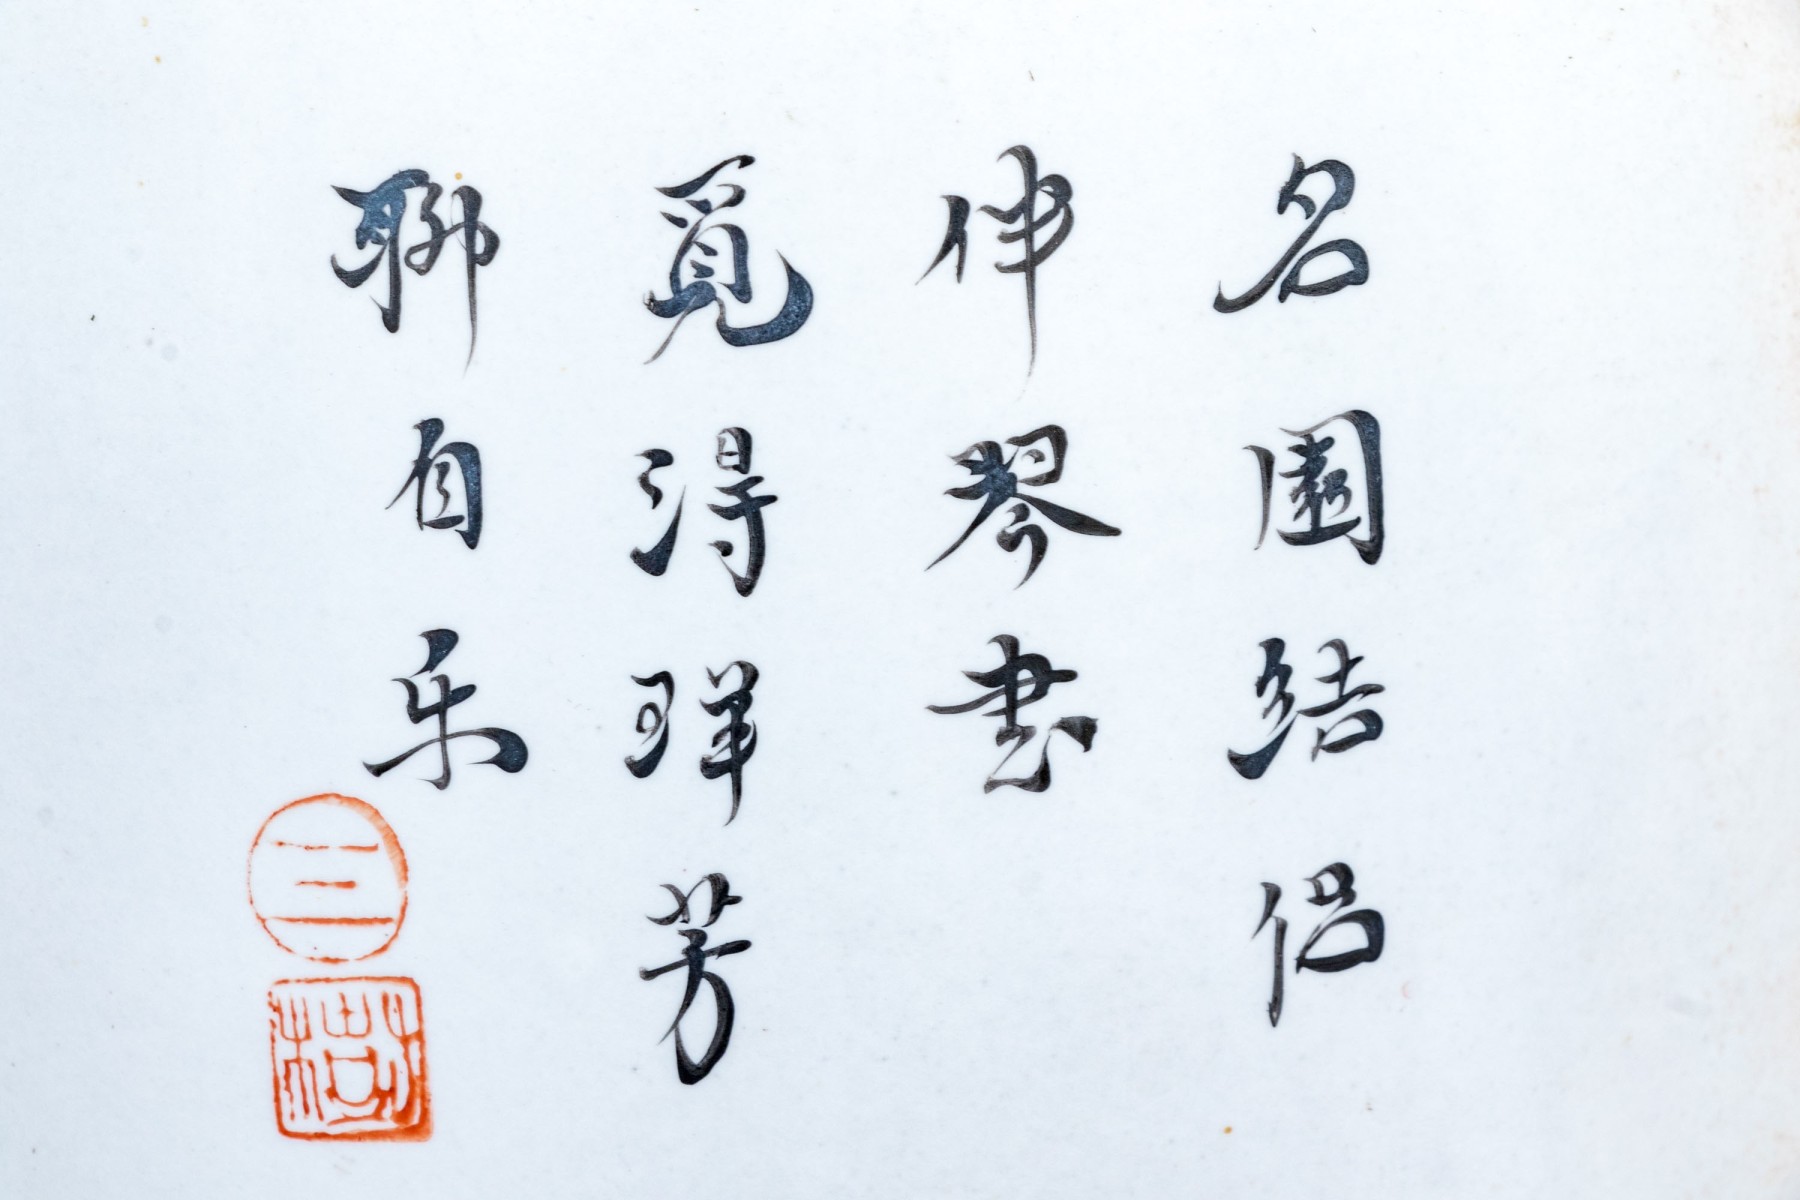 名園結侣
伴琴書
覓得群芳
聊自乐
三
樹